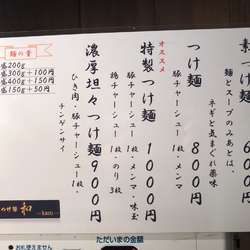 素つけ麺 6
麺とスープのみあとは、
ネギと気まぐれ薬味
つけ麺 800円
豚チャーシュー1枚・メンマ
オススメ
特製つけ麺 1000円
豚チャーシュー1枚・メンマ・味玉
鶏チャーシュー1枚・のり3枚
濃厚坦々つけ麺900円
ひき肉・豚チャーシュー1枚・
チンゲンサイ
麺の量
盛200g
盛300g+100円
盛400g+150円
盛150g+50円
つけ麺 和
kazu
ただいまの金額